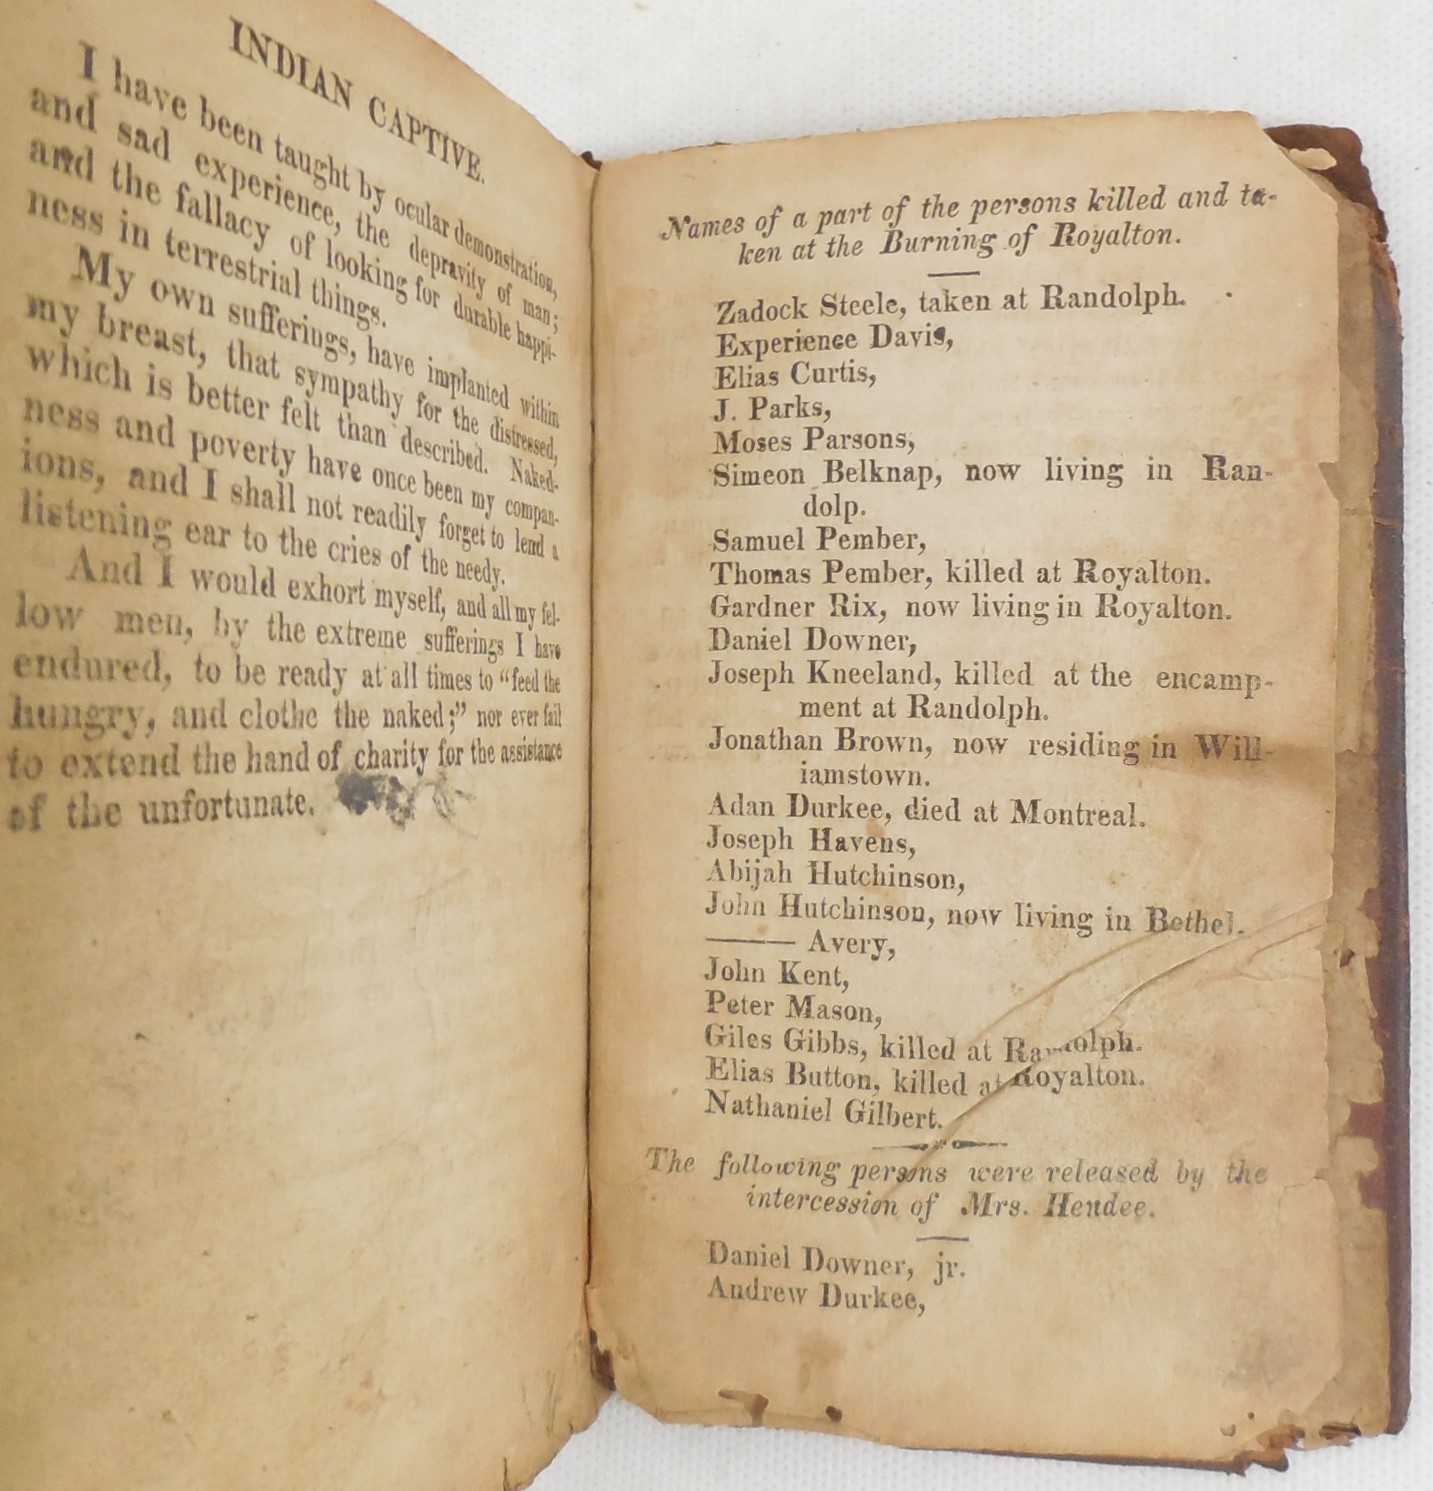 INDIAN CAPTIVE.
I have been taught by ocular demonstration,
and sad experience, the depravity of man;
and the fallacy of looking for durable happi-
ness in terrestrial things.
My own sufferings, have implanted within
my breast, that sympathy for the distressed,
which is better felt than described. Naked-
ness and poverty have once been my compan-
ions, and I shall not readily forget to lend a
listening ear to the cries of the needy.
And I would exhort myself, and all my fel-
low men, by the extreme sufferings I have
endured, to be ready at all times to "feed the
hungry, and clothe the naked;" nor ever fail
to extend the hand of charity for the assistance
of the unfortunate.
Names of a part of the persons killed and ta-
ken at the Burning of Royalton.
Zadock Steele, taken at Randolph.
Experience Davis,
Elias Curtis,
J. Parks,
Moses Parsons,
Simeon Belknap, now living in Ran-
dolp.
Samuel Pember,
Thomas Pember, killed at Royalton.
Gardner Rix, now living in Royalton.
Daniel Downer,
Joseph Kneeland, killed at the encamp-
ment at Randolph.
Jonathan Brown, now residing in Will-
iamstown.
Adan Durkee, died at Montreal.
Joseph Havens,
Abijah Hutchinson,
John Hutchinson, now living in Bethel.
—— Avery,
John Kent,
Peter Mason,
Giles Gibbs, killed at Randolph.
Elias Button, killed at Royalton.
Nathaniel Gilbert.
The following persons were released by the
intercession of Mrs. Hendee.
Daniel Downer, jr.
Andrew Durkee,